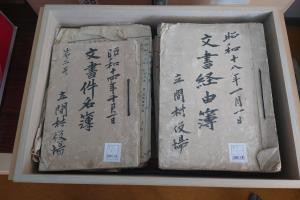 昭和十四年十月一日
文書件名簿
第二号
立間村役場
昭和十八年一月一日
文書経由簿
立間村役場